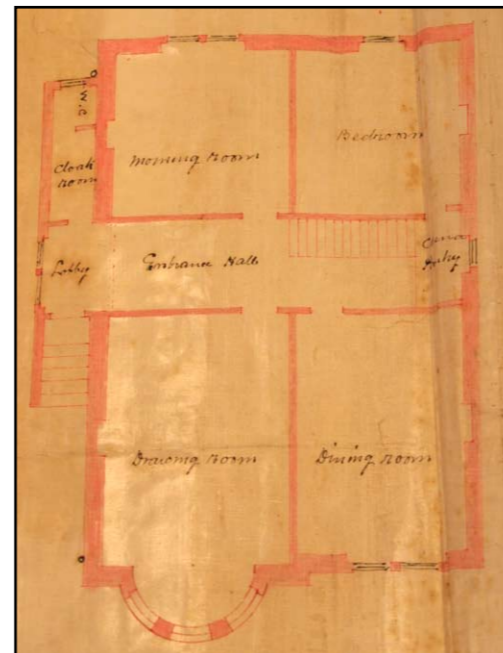 W.C
Cloak
room
Morning room
Bedroom
Lobby
Entrance Hall
China
Drawing room
Dining room